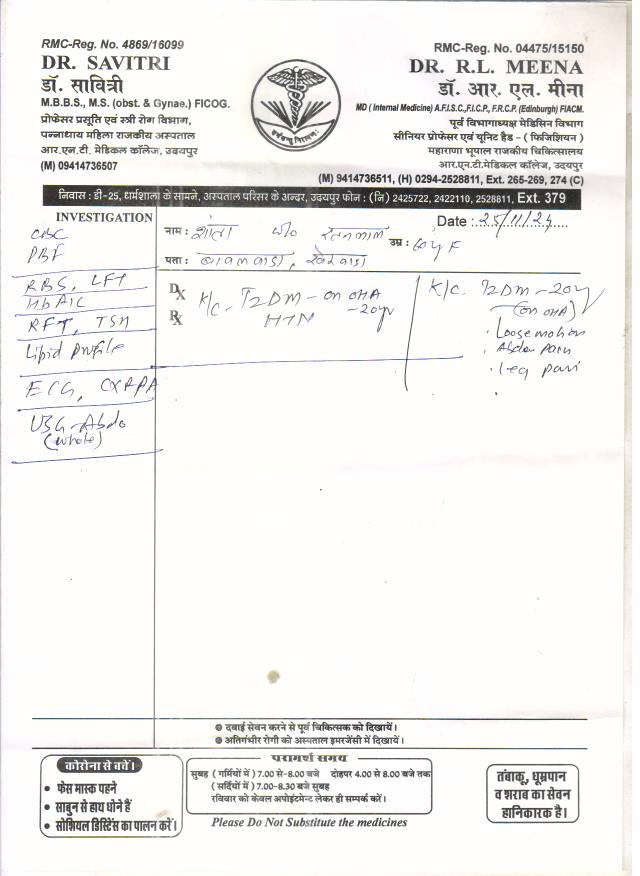 RMC-Reg. No. 4869/16099
DR. SAVITRI
डॉ. सावित्री
M.B.B.S., M.S. (obst. & Gynae.) FICOG.
प्रोफेसर प्रसूति एवं स्त्री रोग विभाग,
पन्नाधाय महिला राजकीय अस्पताल
आर.एन.टी. मेडिकल कॉलेज, उदयपुर
(M) 09414736507
RMC-Reg. No. 04475/15150
DR. R.L. MEENA
डॉ. आर. एल. मीना
MD ( Internal Medicine) A.F.I.S.C.,F.I.C.P., F.R.C.P. (Edinburgh) FIACM.
पूर्व विभागाध्यक्ष मेडिसिन विभाग
सीनियर प्रोफेसर एवं यूनिट हैड - ( फिजिशियन )
महाराणा भूपाल राजकीय चिकित्सालय
आर.एन.टी.मेडिकल कॉलेज, उदयपुर
(M) 9414736511, (H) 0294-2528811, Ext. 265-269, 274 (C)
निवास : डी-25, धर्मशाला के सामने, अस्पताल परिसर के अन्दर, उदयपुर फोन : (नि) 2425722, 2422110, 2528811, Ext. 379
INVESTIGATION
CBC
PBF
RBS, LFT
HbA1C
RFT, TSH
Lipid Profile
ECG, CXRPA
USG-Abdo
(whole)
Date : 25/11/24
नाम : शांता w/o रतनलाल
उम्र : 60y F
पता : खेरवाडा
Dx K/C. T2DM-on OHA
Rx HTN -20yr
K/C. T2DM-20y
(on OHA)
. Loose motion
. Abdo Pain
. Leg pain
दवाई सेवन करने से पूर्व चिकित्सक को दिखायें।
अतिगंभीर रोगी को अस्पताल इमरजेंसी में दिखायें।
कोरोना से बचें।
• फेस मास्क पहने
• साबुन से हाथ धोने हैं
• सोशियल डिस्टेंस का पालन करें।
परामर्श समय
सुबह ( गर्मियों में ) 7.00 से-8.00 बजे दोहपर 4.00 से 8.00 बजे तक
( सर्दियों में ) 7.00-8.30 बजे सुबह
रविवार को केवल अपोइंटमेन्ट लेकर ही सम्पर्क करें।
Please Do Not Substitute the medicines
तंबाकू, धूम्रपान
व शराब का सेवन
हानिकारक है।